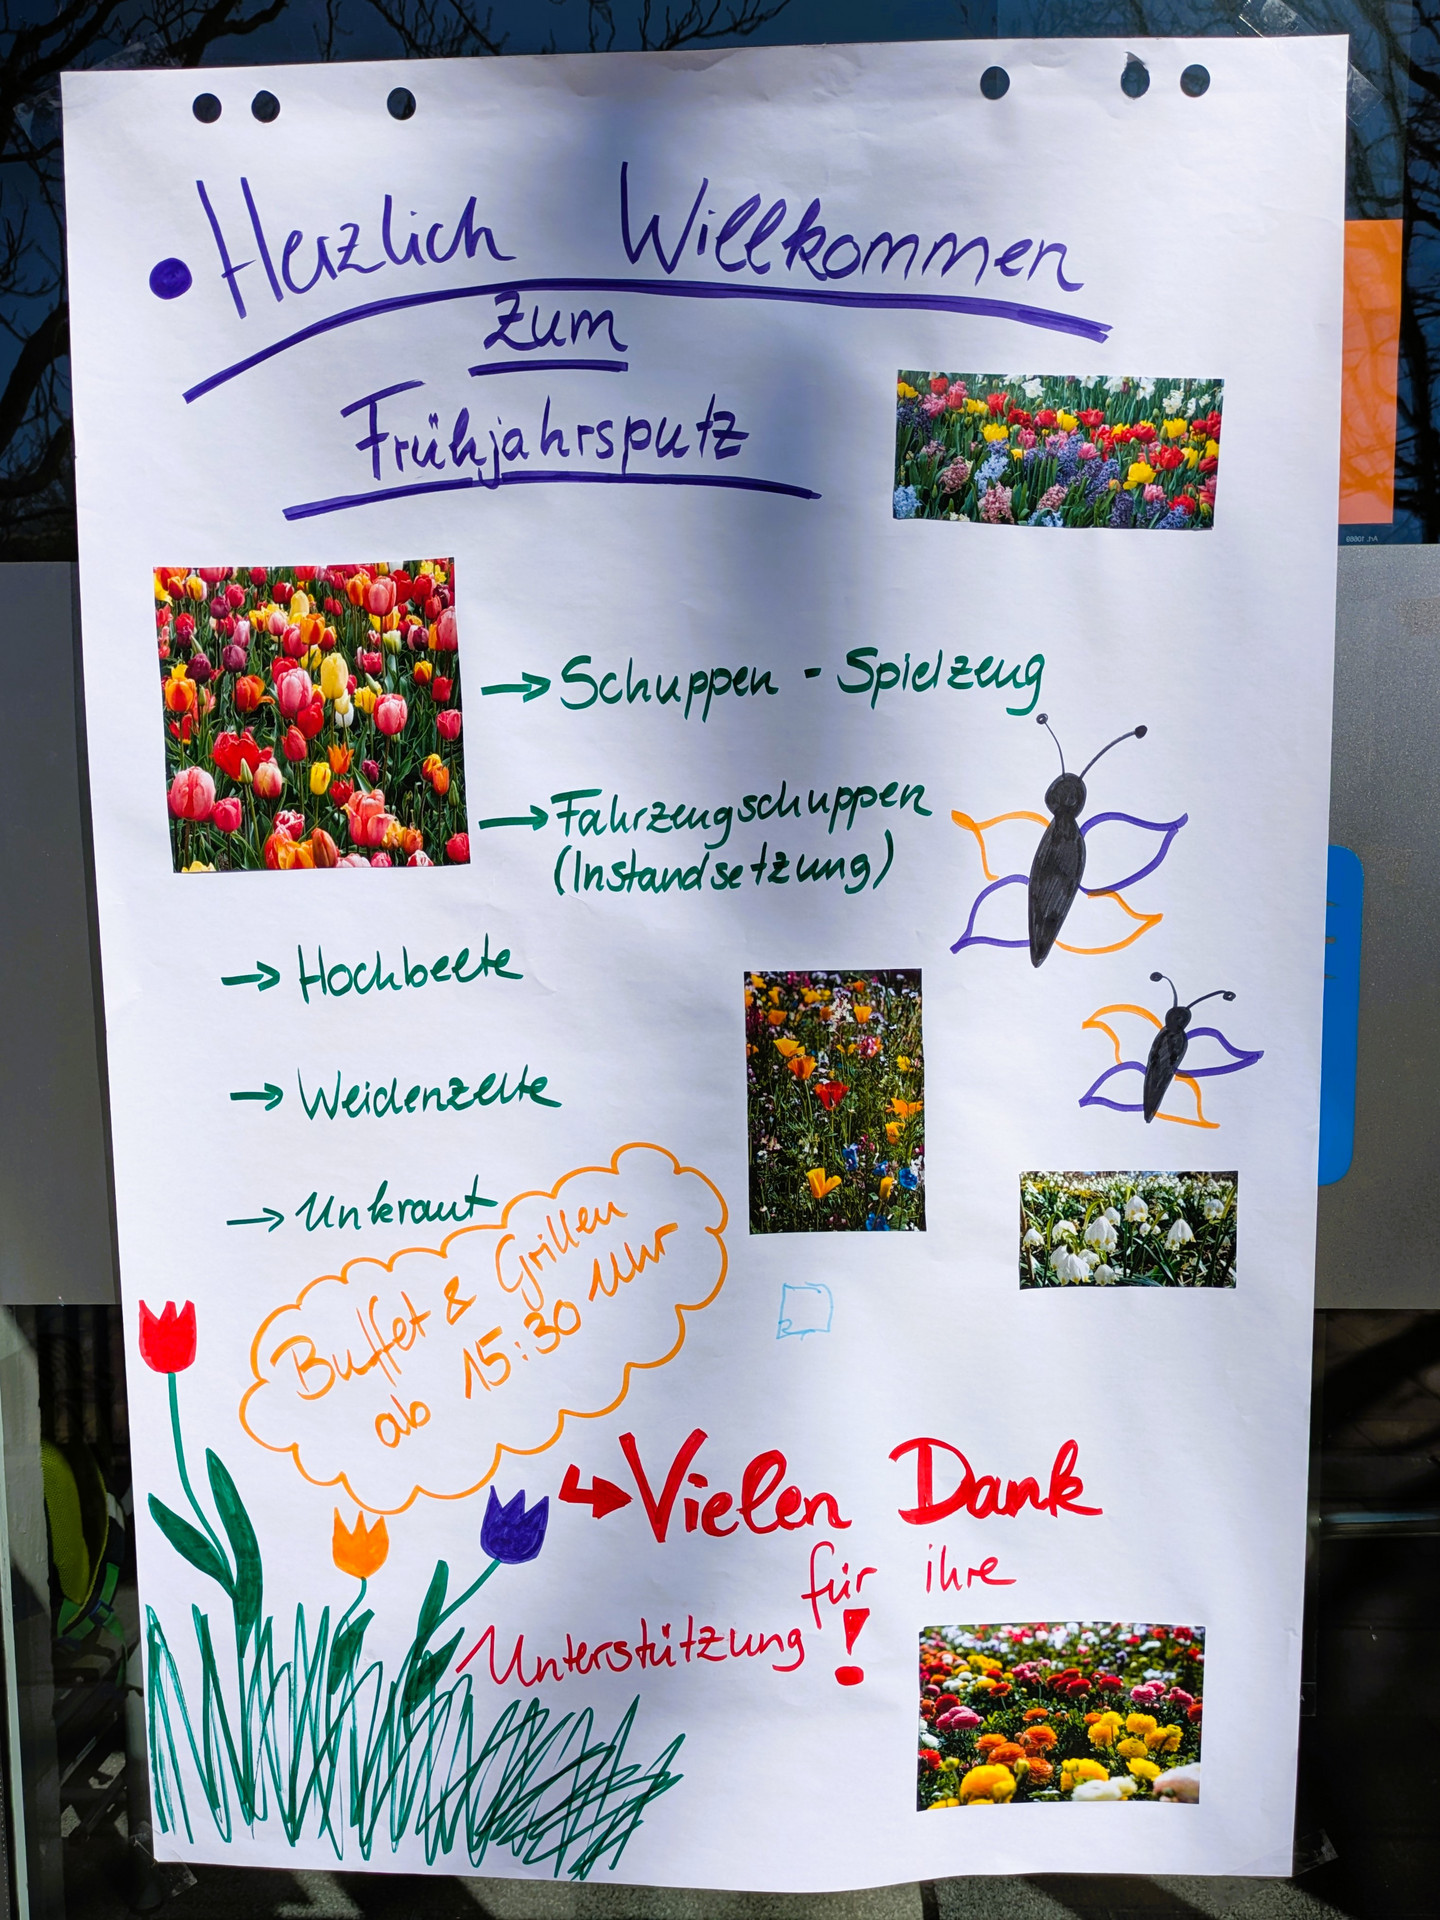 Herzlich Willkommen
zum
Frühjahrsputz
→ Schuppen - Spielzeug
→ Fahrzeugschuppen
(Instandsetzung)
→ Hochbeete
→ Weidenzelte
→ Unkraut
Buffet & Grillen
ab 15:30 Uhr
↳ Vielen Dank
für ihre
Unterstützung!
Art. 10869